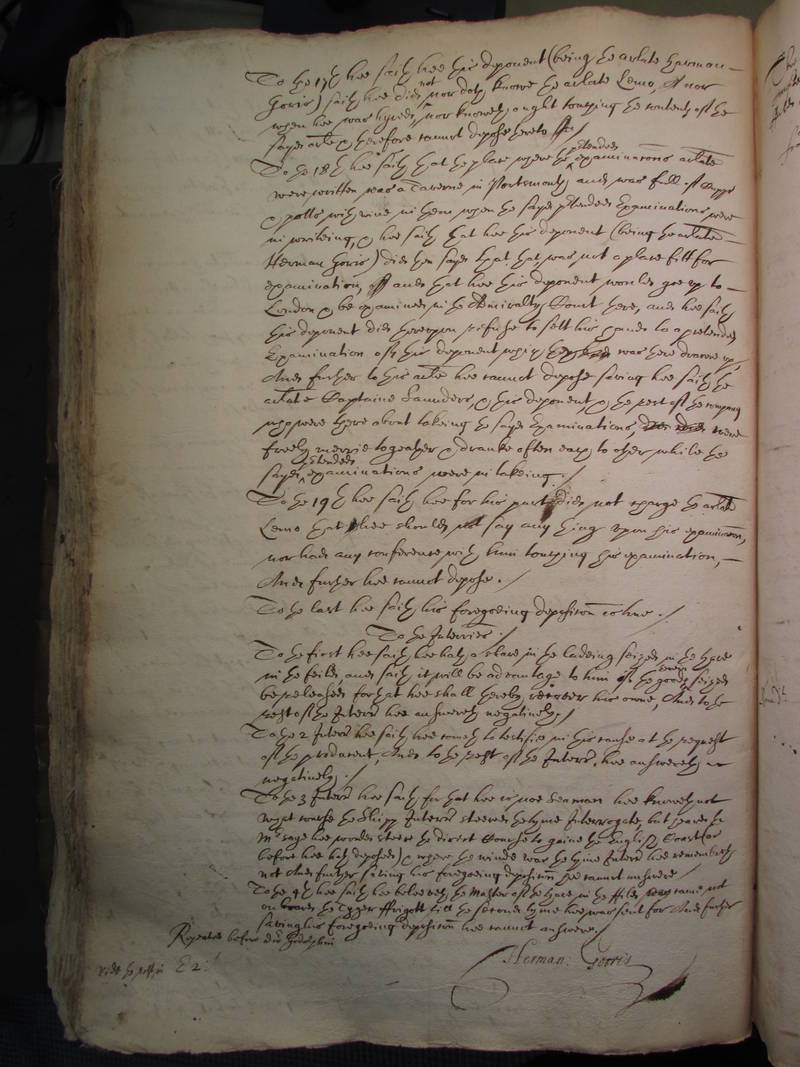 To the 17th hee saith hee this deponent (being the arlate Herman
Goris) saith hee did not nor doth knowe the arlate Lemo, nor
when hee was hyred, nor knoweth ought touching the contents of the
sayd arle & therefore cannot depose thereto
To the 18th hee saith that the place where the pretended examinacons arlate
were written was a Taverne in Portsmouth, and was full of Cupps
& potts with wine in them when the sayd pretended Examinations were
in writeing, & hee saith that hee this deponent (being the arlate
Herman Goris) did then saye that that was not a place fitt for
examination, and that hee this deponent would goe up to
London & be examined in the Admiralty Court here, and hee saith
this deponent did thereupon refuse to sett his hand to a pretended
Examination of this deponent which was there drawne up,
And further to this arle hee cannot depose saving hee saith the
arlate Captaine Saunders, & this deponent, & the rest of the company
who were there about takeing the sayd Examinations, were
freely merrie togeather & dranke often each to other while the
sayd pretended examinations were in takeing./
To the 19th hee saith hee for his part did not charge the arlate
Lemo that hee should not say any thing upon his examinacon,
nor had any conference with him touching his examination,
And further hee cannot depose./
To the last hee saith his foregoeing deposition is true./
To the Interries./
To the first hee saith hee hath a share in the ladeing seized in the hare
in the feild, and saith it will be advantage to him if the goods seized
be released for that hee shall thereby recover his owne, And to the
rest of the Interrie hee answereth negatively./
To the 2 Interrie hee saith hee cometh to testifie in this cause at the request
of the producent, And to the rest of the Interrie hee answereth
negatively./
To the 3 Interrie hee saith for that hee is noe seaman hee knoweth not
what course the Shipp Interrie steered the tyme Interrogate, but heard the
Mr saye hee would steere the direct Course to gaine the English Coast (as
before hee hath deposed) & where the winde was the tyme Interrie hee remembreth
not And further saving his foregoeing deposition hee cannot answere
To the 4th hee saith hee beleeveth the Master of the hare in the ffeild came not
on board the Tyger ffrigott till the second tyme hee was sent for And further
saving his foregoeing deposition hee cannot answere./
Repeated before doctor Godolphin
Herman: Gorris
E 2: